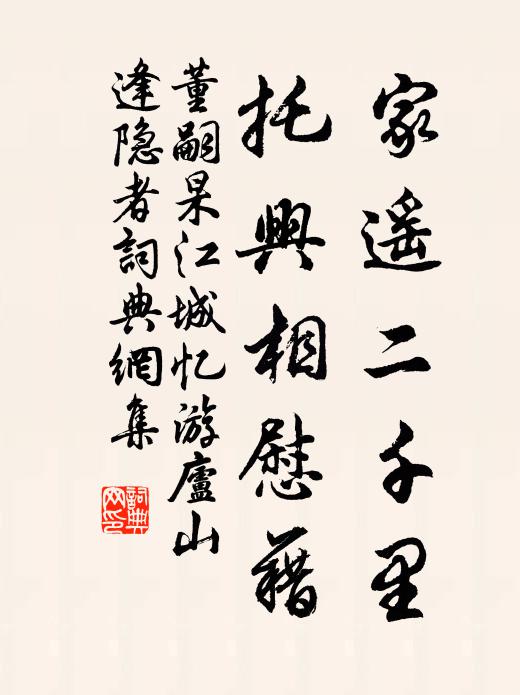 家遥二千里
托興相慰藉
董嗣杲江城忆游廬山
逢隐者詞典網集
詞典网印